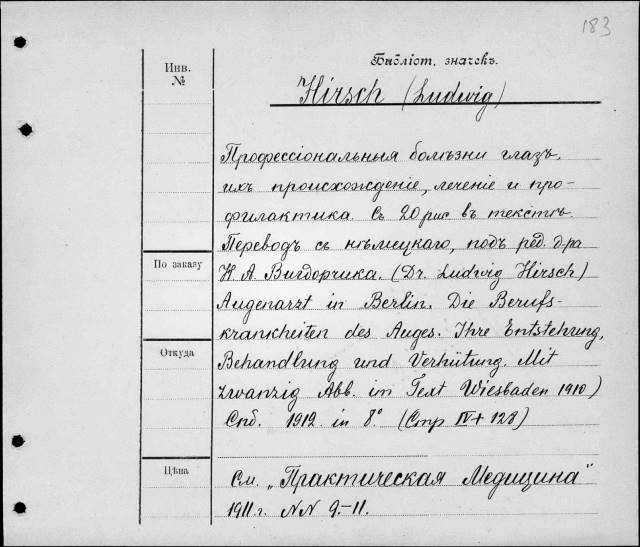 183
Библіот. значекъ.
Инв.
№
Hirsch (Ludwig)
Профессіональныя болѣзни глазъ,
ихъ происхожденіе, леченіе и про-
филактика. Съ 20 рис въ текстѣ.
Переводъ съ нѣмецкаго, подъ ред. д-ра
По заказу
Н А. Вигдорчика. (Dr. Ludwig Hirsch)
Augenarzt in Berlin. Die Berufs-
krankheiten des Auges. Ihre Entstehung,
Откуда
Behandlung und Verhütung. Mit
zwanzig Abb. im Text Wiesbaden 1910)
Спб. 1912. in 8° (Стр IV + 128)
Цѣна
См. „Практическая Медицина"
1911 г. NN 9-11.